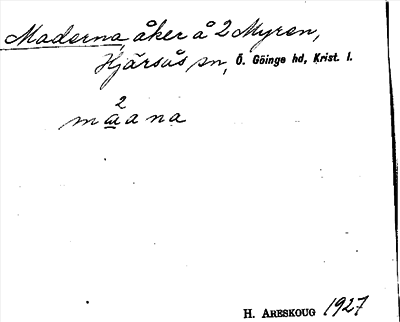 Maderna, åker å 2 Myren,
Hjärsås sn, Ö. Göinge hd, Krist. l.
2
maana
H. ARESKOUG 1927